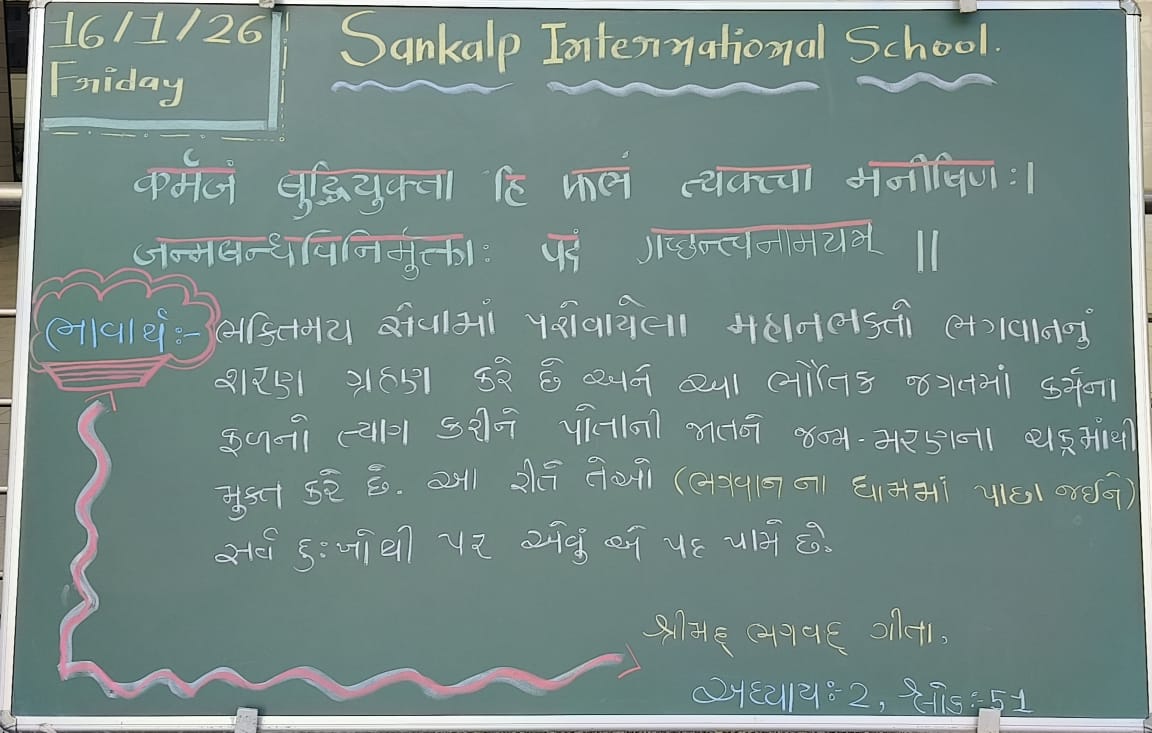 16/1/26
Friday
Sankalp International School.
कर्मजं बुद्धियुक्ता हि फलं त्यक्त्वा मनीषिणः।
जन्मबन्धविनिर्मुक्ताः पदं गच्छन्त्यनामयम् ॥
ભાવાર્થઃ- ભક્તિમય સેવામાં પરોવાયેલા મહાનભક્તો ભગવાનનું
શરણ ગ્રહણ કરે છે અને આ ભૌતિક જગતમાં કર્મના
ફળનો ત્યાગ કરીને પોતાની જાતને જન્મ-મરણના ચક્રમાંથી
મુક્ત કરે છે. આ રીતે તેઓ (ભગવાન ના ધામમાં પાછા જઈને)
સર્વ દુઃખોથી પર એવું એ પદ પામે છે.
શ્રીમદ્ ભગવદ્ ગીતા,
અધ્યાયઃ-2, શ્લોકઃ-51